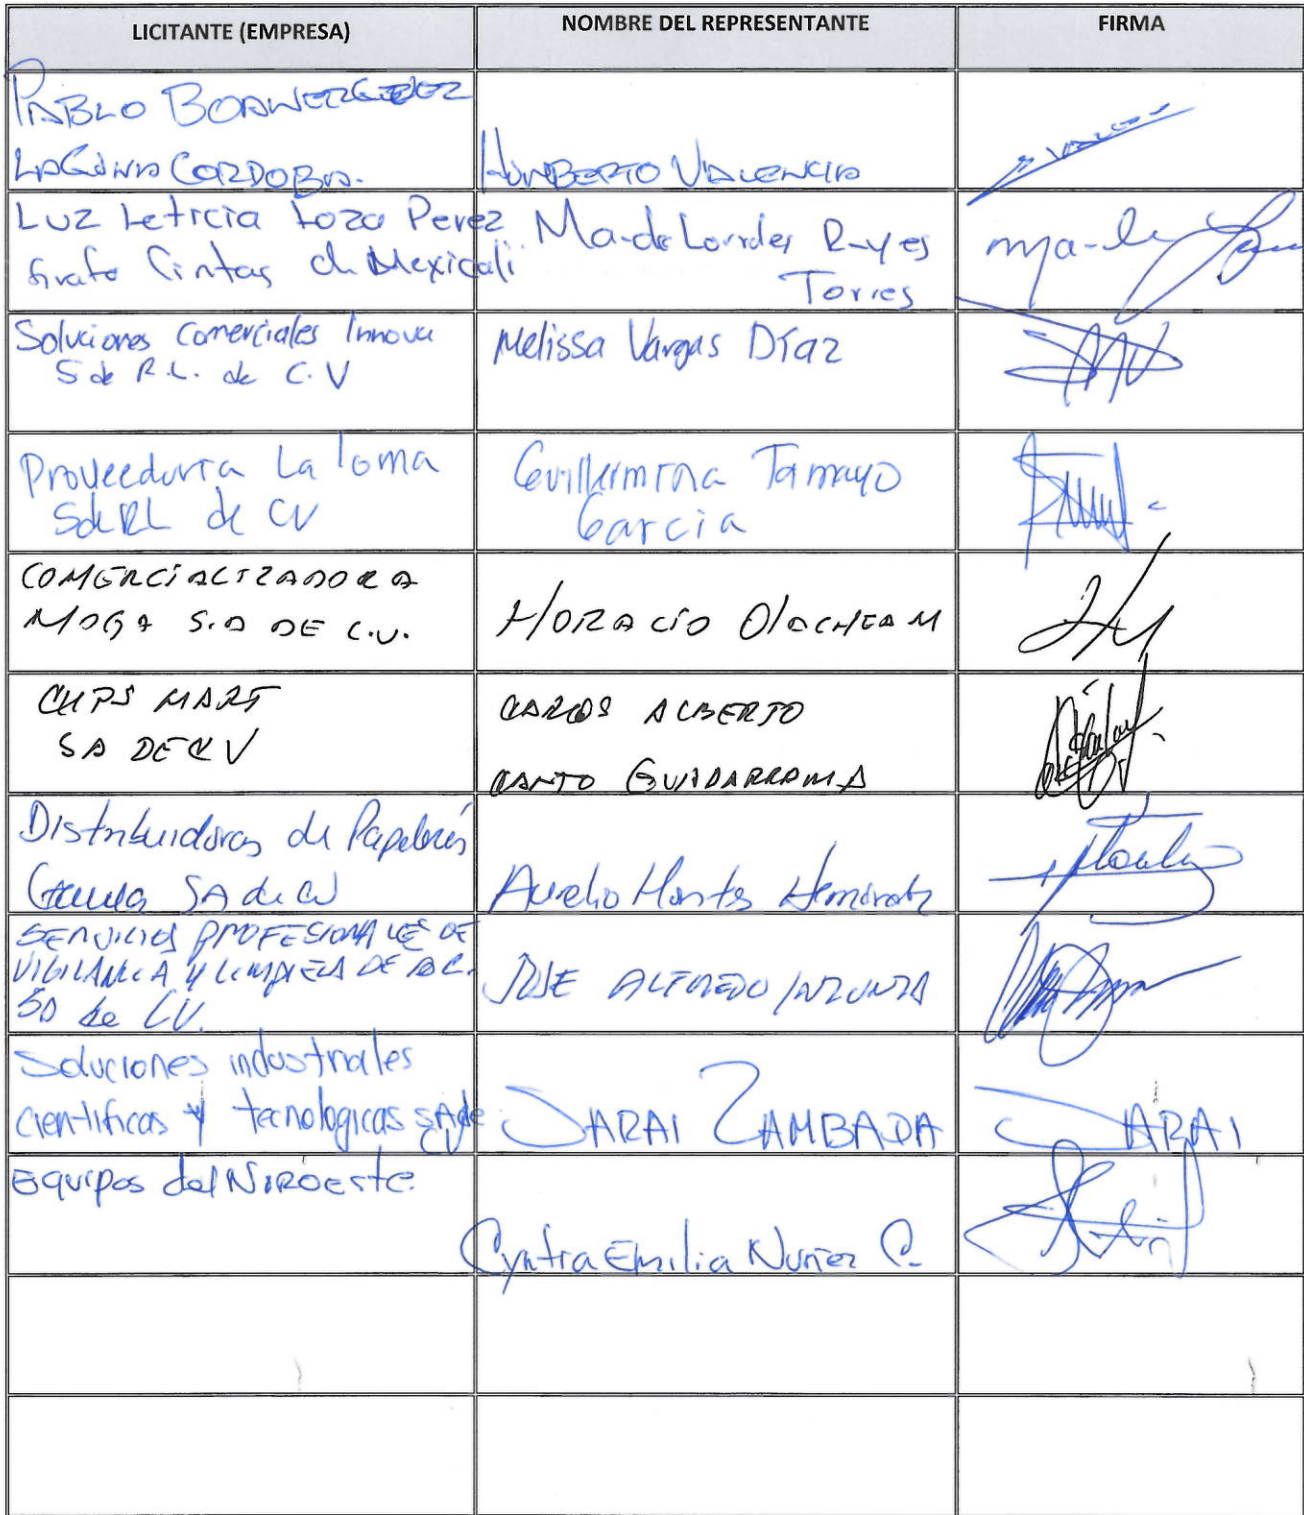 LICITANTE (EMPRESA)
NOMBRE DEL REPRESENTANTE
FIRMA
PABLO
LAGUNA CORDOBA.
HUMBERTO VALENCIA
Luz Leticia Loza Perez
Grafo Cintas de Mexicali
Ma de Lourdes Reyes
Torres
Soluciones Comerciales Innova
S de R.L. de C.V
Melissa Vargas Díaz
Proveeduria La loma
S de RL de CV
Guillermina Tamayo
Garcia
COMERCIALIZADORA
MOGA S.A DE C.V.
HORACIO OLACHEA M
CHPS MART
SA DE CV
CARLOS ALBERTO
CANTO GUADARRAMA
Distribuidoras de
SA de CV
Aurelio Montes
SERVICIOS PROFESIONALES DE
VIGILANCIA Y LIMPIEZA DE BC.
SA de CV.
JOSE ALFREDO INZUNZA
Soluciones industriales
cientificas y tecnologicas SA de
CV
SARAI ZAMBADA
SARAI
Equipos del Noroeste.
Cyntia Emilia Nuñez C.